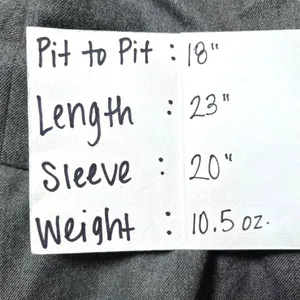 Pit to Pit : 18"
Length : 23"
Sleeve : 20"
Weight : 10.5 oz.